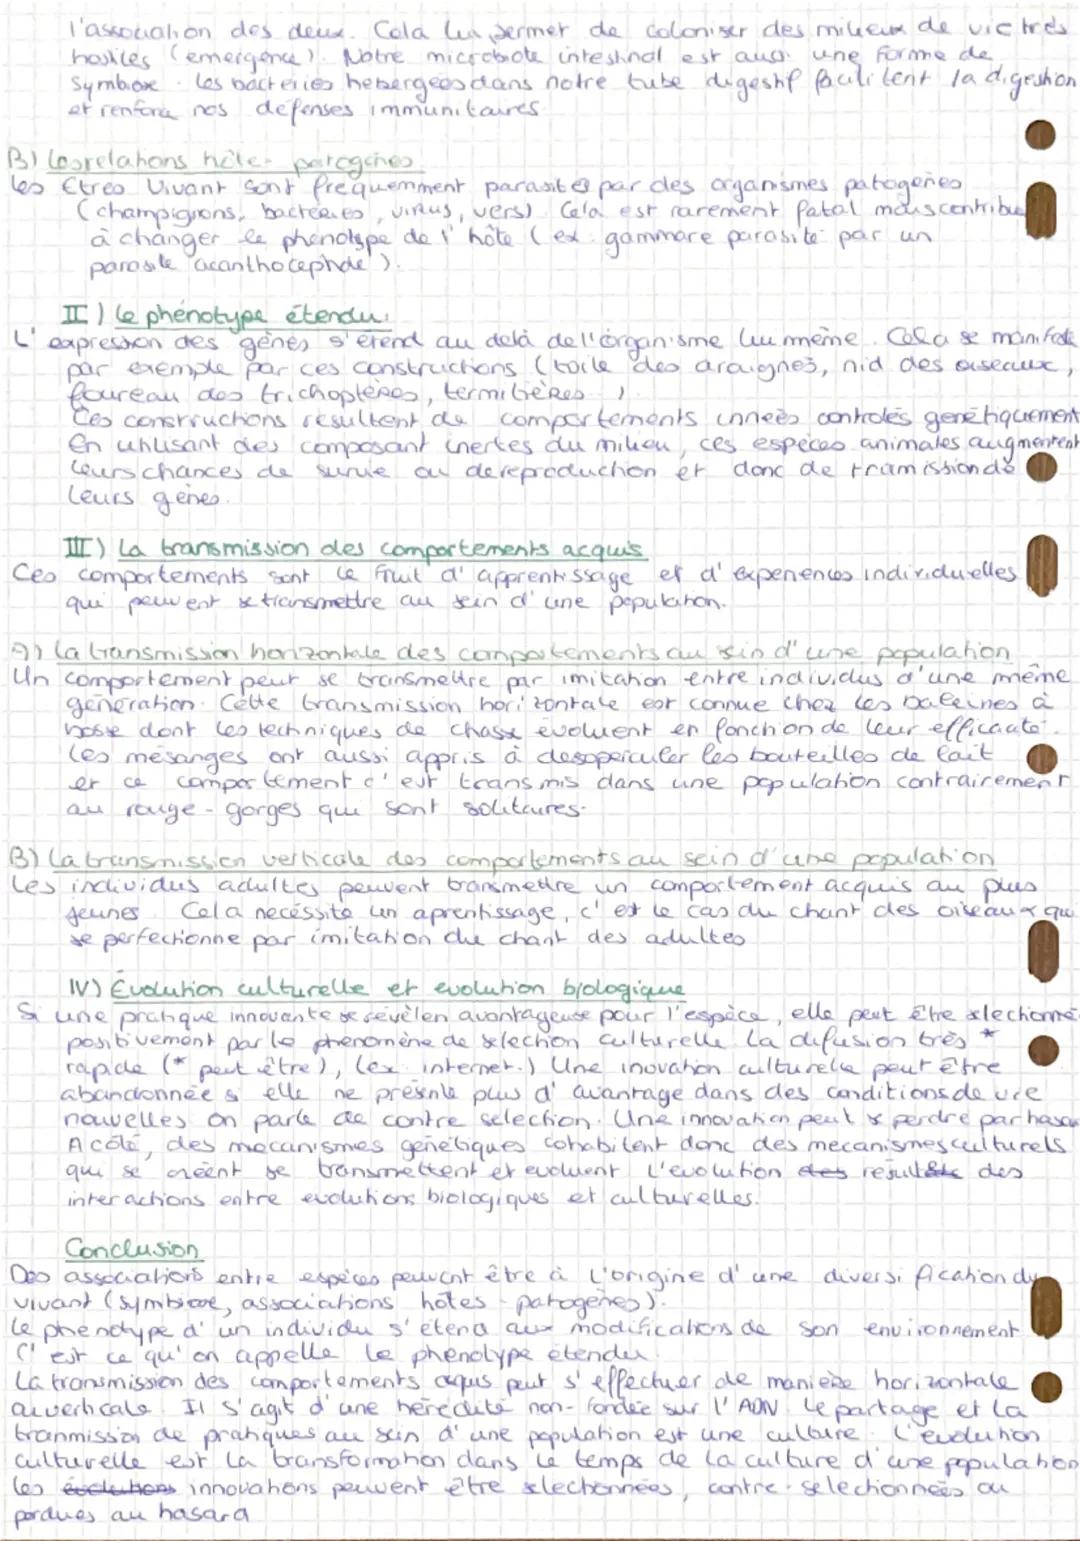 l'association des deux. Cela lui permet de coloniser des milieux de vie très
hostiles (emergence). Notre microbiote intestinal est aussi une forme de
symbiose. Les bactéries hebergées dans notre tube digestif facilitent la digestion
et renforce nos défenses immunitaires
B) Les relations hôte-patogènes
Les Etres Vivant sont frequemment parasités par des organismes patogenes
(champignons, bactéries, virus, vers). Cela est rarement fatal mais contribue
à changer le phénotype de l'hôte (ex: gammare parasité par un
parasite "acanthocephale").
II) Le phénotype étendu.
L'expression des gènes s'étend au delà de l'organisme lui même. Cela se manifeste
par exemple par ces constructions (toile des araignés, nid des oiseaux,
foureau des trichoptères, termitières..)
Ces constructions resultent de comportements innées controlés genétiquement
En utilisant des composant inertes du milieu, ces espèces animales augmentent
leurs chances de survie ou de reproduction et donc de tramission de
leurs gènes.
III) La transmission des comportements acquis
Ces comportements sont le fruit d'apprentissage et d'experiences individuelles
qui peuvent se transmettre au sein d'une population.
A) La transmission horizontale des comportements au sein d'une population
Un comportement peut se transmettre par imitation entre individus d'une même
génération. Cette transmission horizontale est connue chez les baleines à
bosse dont les techniques de chasse évoluent en fonction de leur efficacité.
Les mésanges ont aussi appris à desoperculer les bouteilles de lait
et ce comportement c'est transmis dans une population contrairement
au rouge-gorges qui sont solitaires.
B) La transmission verticale des comportements au sein d'une population
Les individus adultes peuvent transmettre un comportement acquis au plus
jeunes. Cela necéssite un aprentissage, c'est le cas du chant des oiseaux qui
se perfectionne par imitation du chant des adultes
IV) Evolution culturelle et evolution biologique
Si une pratique innovante se revèlen avantageuse pour l'espèce, elle peut être selectionné
positivement par le phenomène de selection culturelle. La difusion très *
rapide (* peut être), (ex: internet.) Une inovation culturelle peut être
abandonnée si elle ne présente plus d'avantage dans des conditions de vie
nouvelles on parle de contre selection. Une innovation peut se perdre par hasard
A côté, des mecanismes génétiques cohabitent donc des mecanismes culturels
qui se créent se transmettent et evoluent. L'evolution des resulte des
interactions entre evolutions biologiques et culturelles.
Conclusion
Des associations entre espèces peuvent être à l'origine d'une diversification du
vivant (symbiose, associations hôtes-patogènes).
Le phénotype d'un individu s'étend aux modifications de son environnement
C'est ce qu'on appelle le phénotype étendu.
La transmission des comportements acquis peut s'effectuer de manière horizontale
ou verticale. Il s'agit d'une hérédité non-fondée sur l'ADN. Le partage et la
tranmission de pratiques au sein d'une population est une culture. L'évolution
culturelle est la transformation dans le temps de la culture d'une population
Les évolutions innovations peuvent être selectionnées, contre-selectionnées ou
perdues au hasard